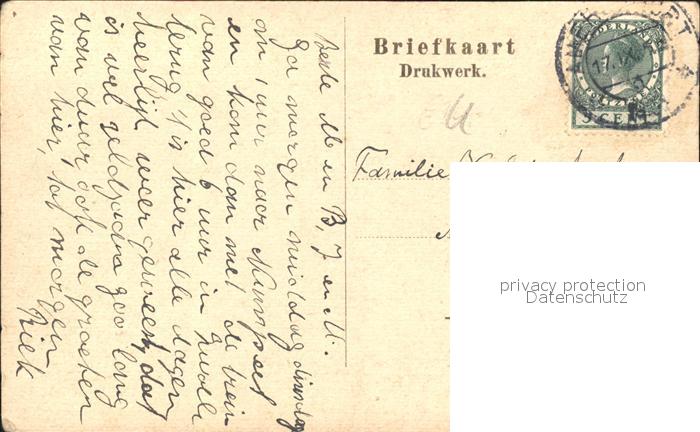 Briefkaart
Drukwerk.
17.IX
5 CENT
Familie
Beste M en B, J en M.
Ga morgen middag dinsdag
om 1 uur naar Nunspeet
en kom dan met de trein
van goed 6 uur in Zwolle
terug 't is hier alle dagen
heerlijk weer geweest, dat
is wel zoo lang
van duur, ook de groeten
van hier, tot morgen
Riek
privacy protection
Datenschutz